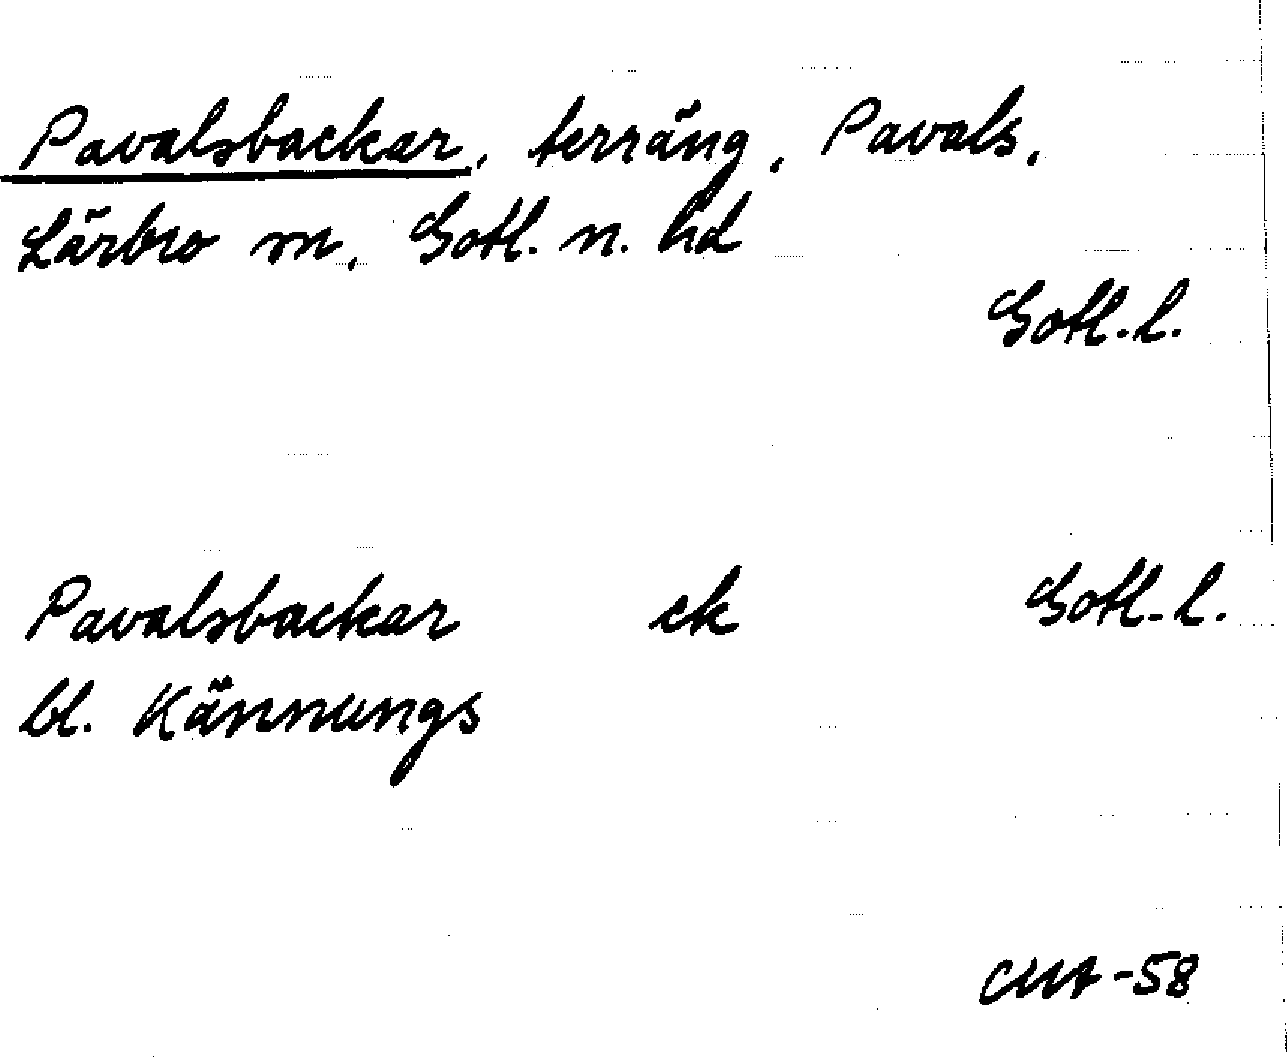 Pavalsbackar, terräng, Pavals,
Lärbro sn, Gotl. n. hd
Gotl. l.
Pavalsbackar ek Gotl. l.
bl. Kännungs
CMA-58